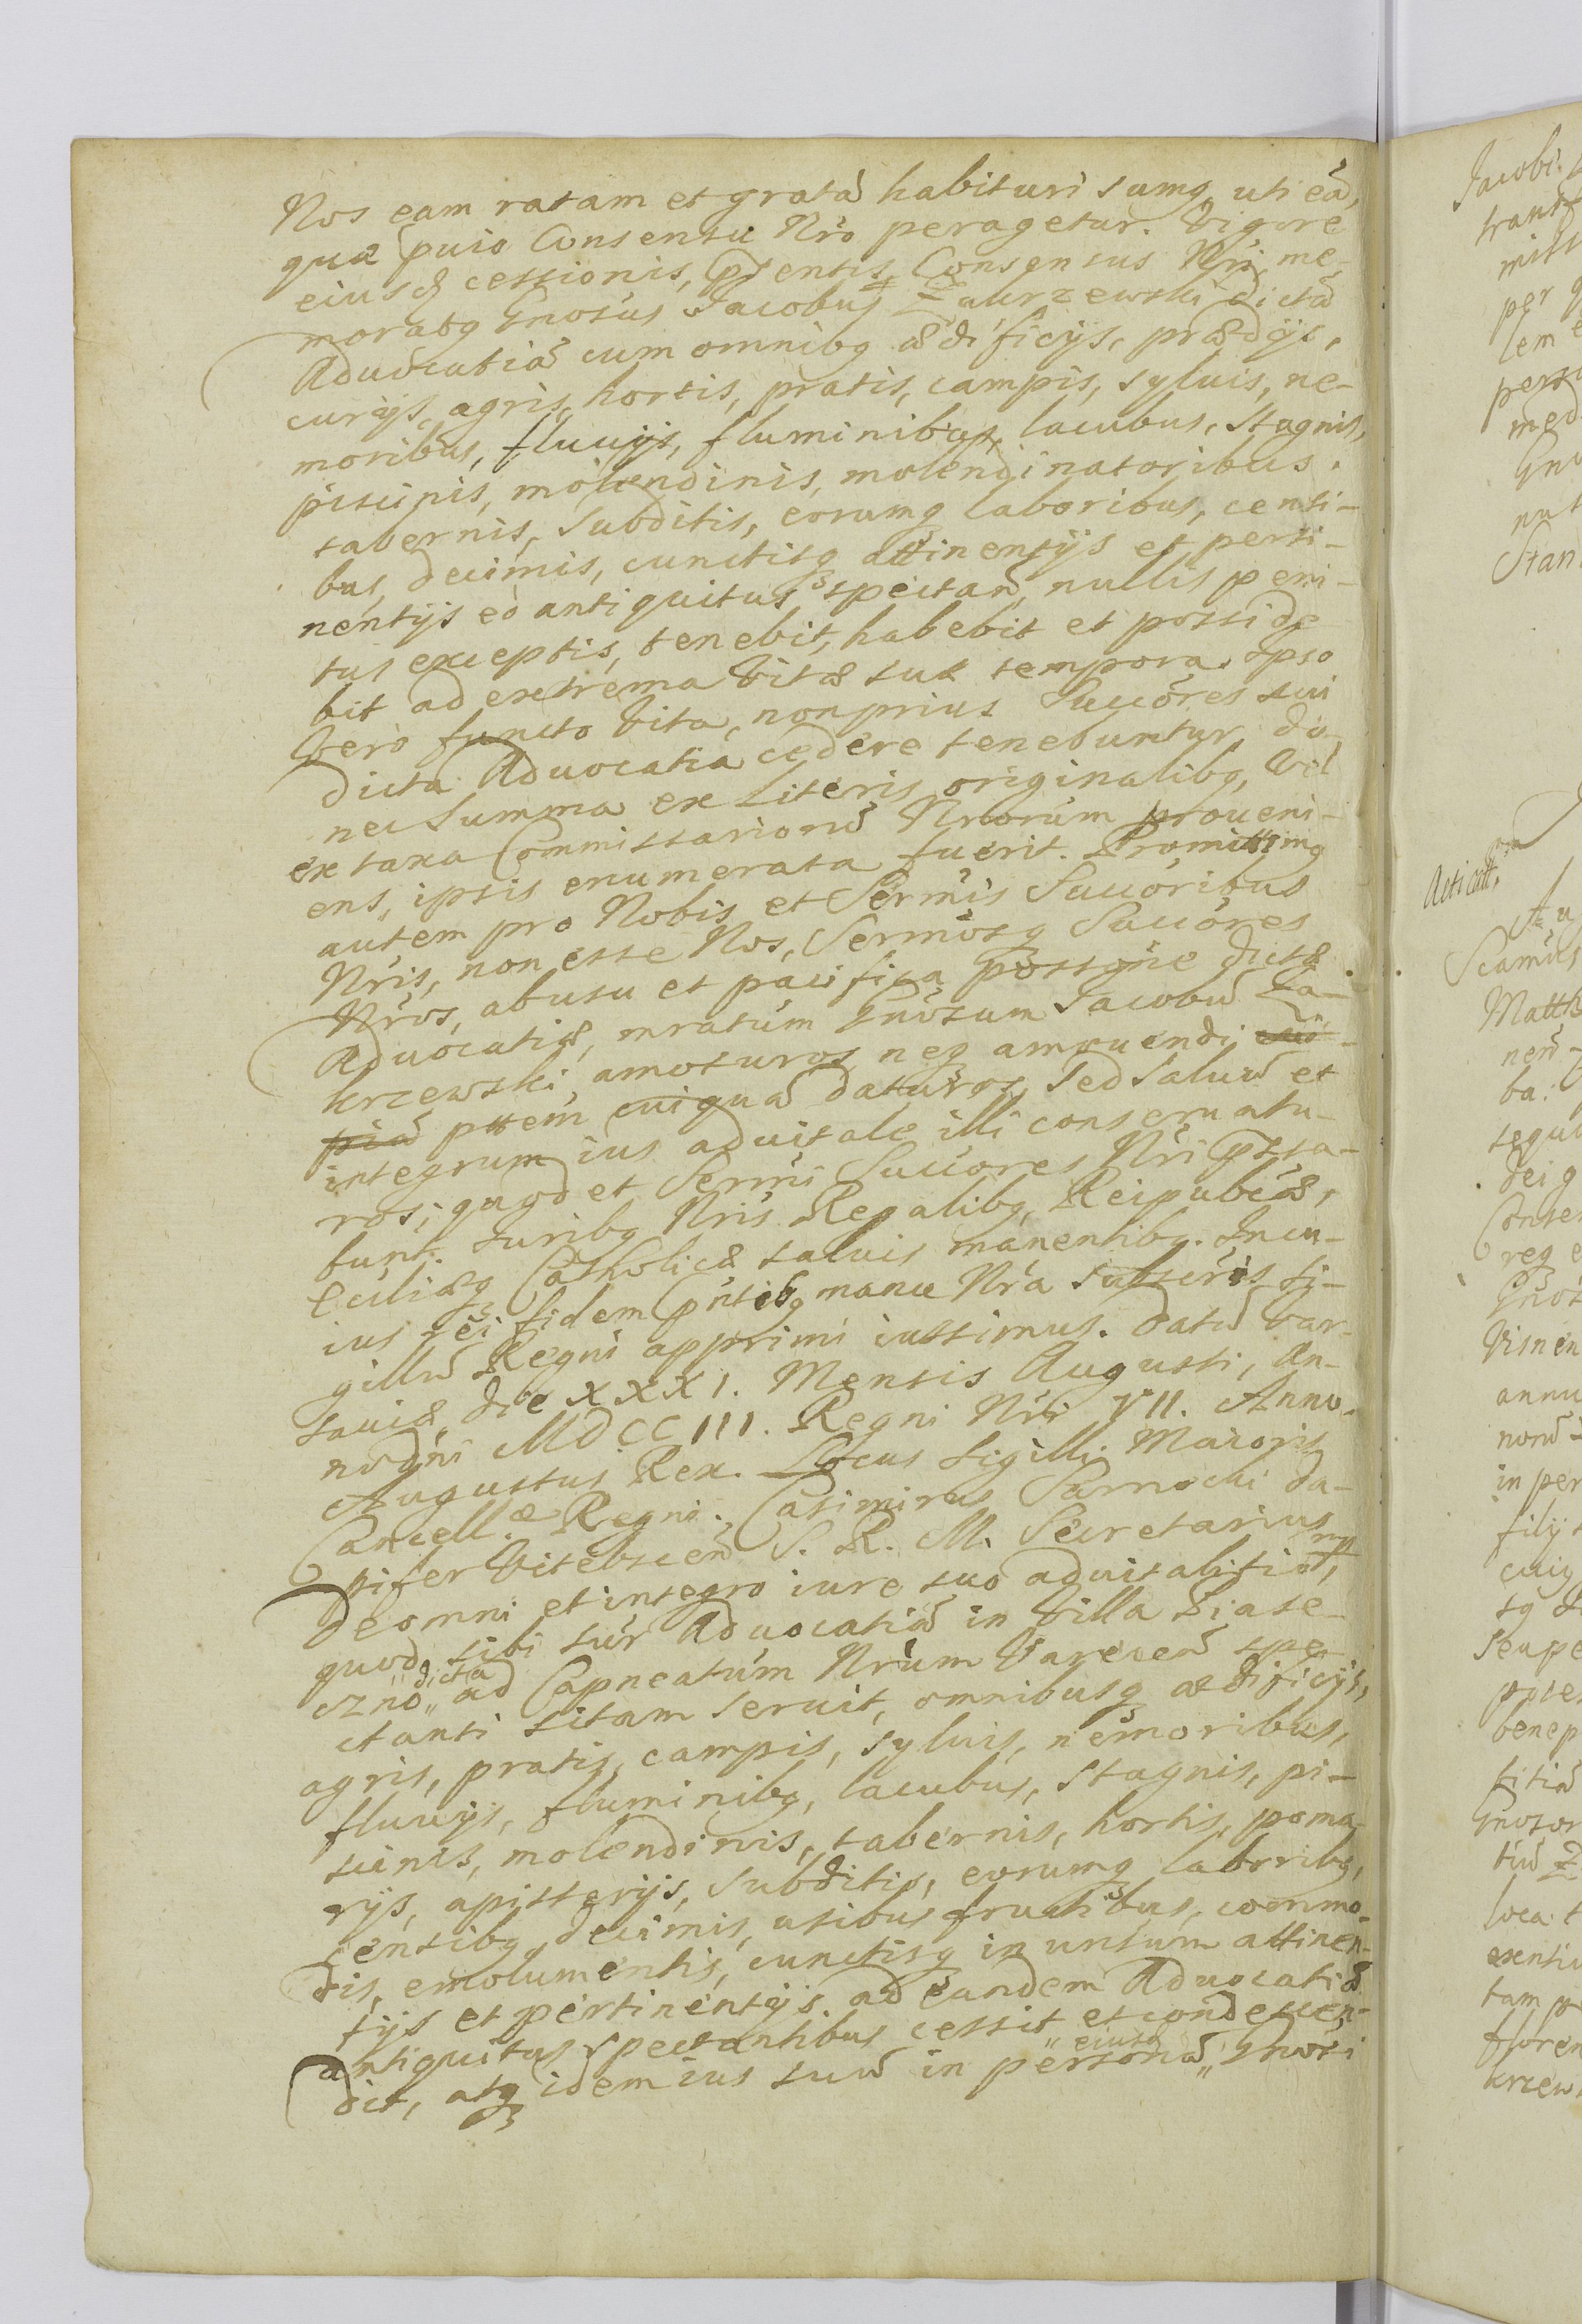 Nos eam ratam et gratã habituri sumq, uti eã,
quæ pũio Consensu Nr̃o peragetur. Vigore
eiusq cessionis, p̃sentis Consensus Nr̃i, me-
moratq Gnosus Jacobus Zakrzewski dictã
Aduocatiã cum omnibq ædificijs, prædijs,
curijs, agris, hortis, pratis, campis, syluis, ne-
moribus, fluuijs, fluminibus, lacubus, stagnis,
piscinis, molendinis, molendinatoribus,
tabernis, subditis, eorumq laboribus, censi-
bus, decimis, cunctisq attinentijs et perti-
nentijs eò antiquitus spectan̄, nullis peni-
tus exceptis, tenebit, habebit et posside
bit ad extrema vitæ suæ tempora. Ipso
verò functo vita, non prius Succores sui
dicta Aduocatia cedere tenebuntur, do-
nec summa ex Literis originalibq, vel
ex taxa Commissariorũ Nrorum proueni-
ens, ipsis enumerata fuerit. Promittimq
autem pro Nobis et Sermis Succoribus
Nris, non esse Nos, Sermosq Succores
Nros, ab usu et pacifica possone dictæ
Aduocatiæ, mratum Gnosum Jacobũ Za-
krzewski, amoturos, neq amouendi cui-
piã pttem cuiquã daturos, sed saluũ et
integrum ius aduitale illi conseruatu-
ros; quod et Sermi Succores Nri p̃sta-
bunt. Juribq Nris Regalibq, Reipubcæ,
Eccliæq Catholicæ saluis manentibq. In cu-
ius rei fidem p̃ntibq manu Nr̃a subscris Si-
gillũ Regni apprimi iussimus. Datũ Var-
sauiæ, die XXXI. Mensis Augusti, An-
no dni MDCCIII. Regni Nri VII. Anno.
Augustus Rex. Locus sigilli Maioris
Cancell.æ Regni. Casimirus Sarnocki Da-
pifer Vitebscen S. R. M. Secretarius mp
De omni et integro iure suo aduitalitio,
quod sibi sur Aduocatiã in Villa Liase-
czno dicta ad Capneatum Nrum Varecen spe-
ctanti sitam seruit, omnibusq ædificijs,
agris, pratis, campis, syluis, nemoribus,
fluuijs, fluminibq, lacubus, stagnis, pi-
scinis, molendinis, tabernis, hortis, poma-
rijs, apisterijs, subditis, eorumq laboribq,
censibq, decimis, usibus fructibus, commo-
dis, emolumentis, cunctisq in unsum attinen-
tijs et pertinentijs ad eandem Aduocatiã
antiquitus spectantibus cessit et condescen-
dit, atq idem ius suũ in personã eiusd Gnosi
Jacobi
mitt
per
lem
perso
med
Gno
Stan
Acticatt.
Scamus
Matth
nen
ba:
sequ
dei g
Conse
req e
Gnos
Visnen
annu
in per
filij
cuiq
seupe
benep
Gnosor
tiũ Z
loca
exentiu
tam p
floren
krzew